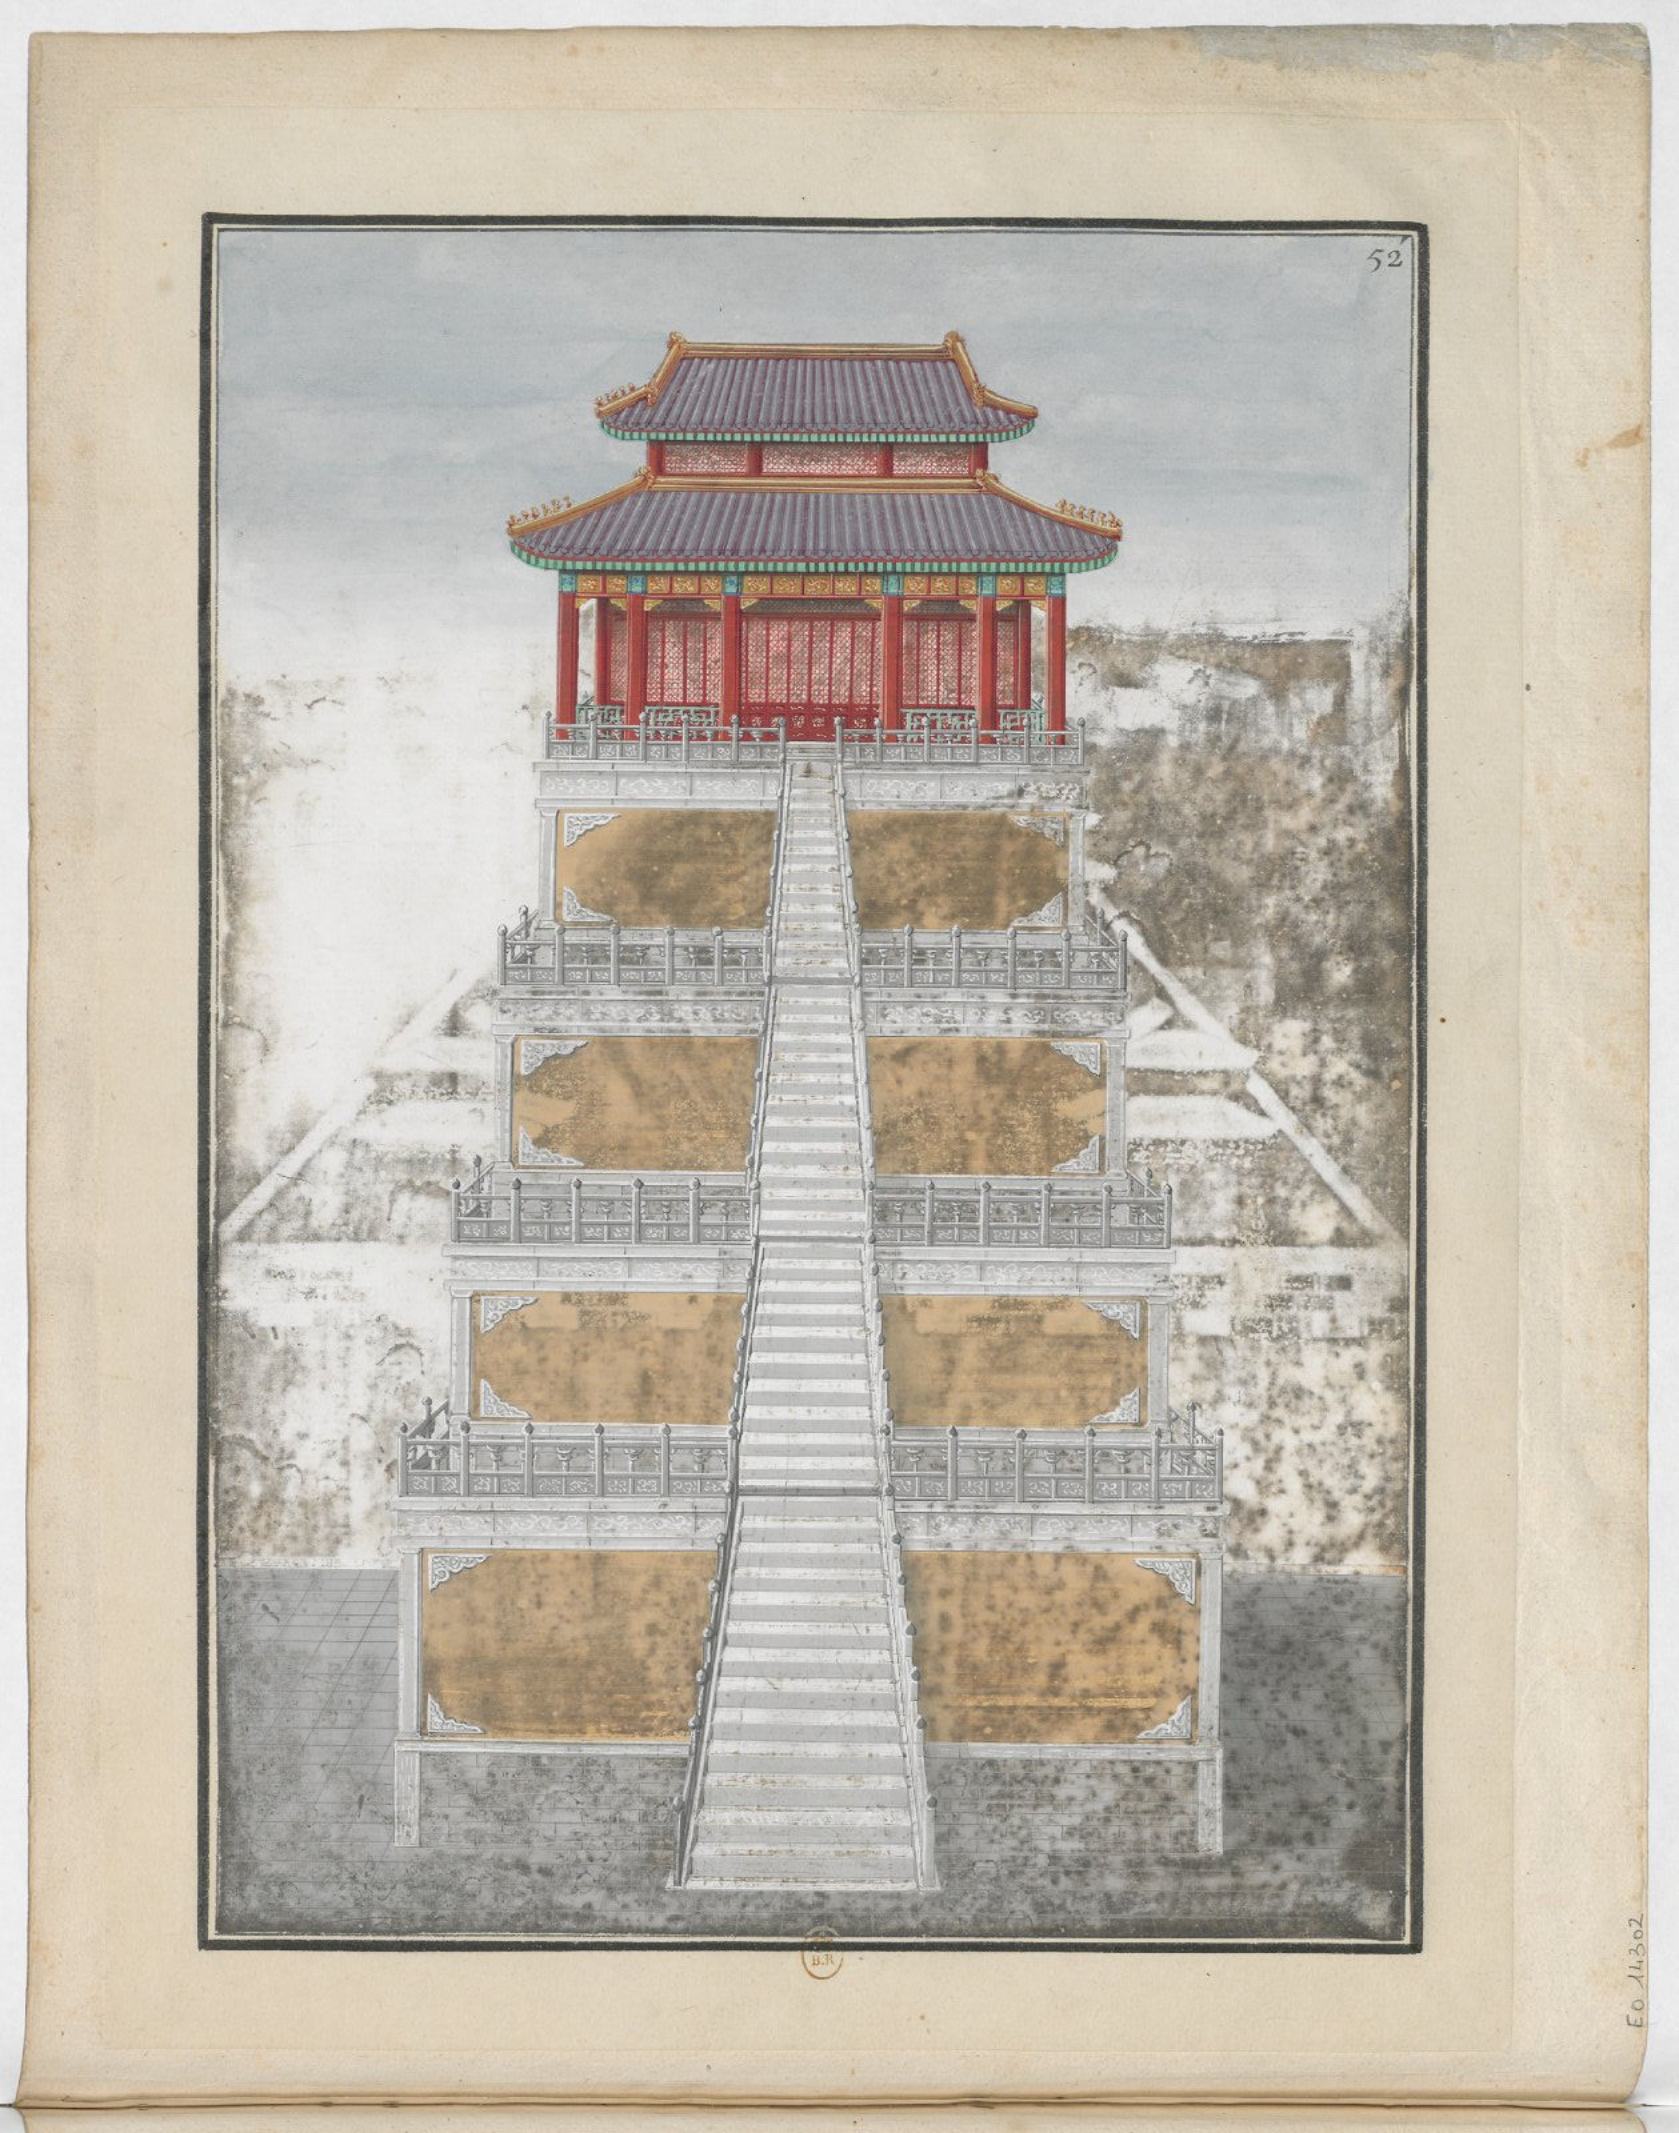 52
B.R
EO 14302